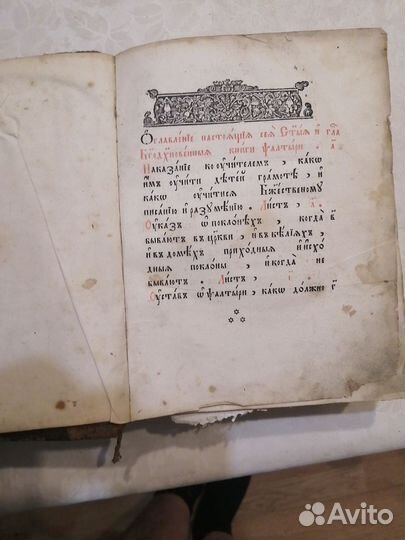 Ѻглавленїе настоѧщїѧ сеѧ С҃тыѧ и҆ гла
Бг҃одх҃новенныѧ книги ѱалтыри . а҃
Наказанїе ко ᲂу҆чителемъ , какѡ
и҆мъ ᲂу҆чити дѣтей грамотѣ , и҆
какѡ ᲂу҆читисѧ Бж҃ественомꙋ
писанїю и҆ разꙋмѣнїю . Листъ , а҃ .
Оу҆казъ ѡ҆ поклонѣхъ , когда в҃
бываютъ въ цр҃кви , и҆ въ кѣлїѧхъ ,
и҆ въ домѣхъ приходныѧ и҆ и҆схо
дныѧ поклоны , и҆ когда не
бываютъ . Листъ , і҃ .
Оу҆ставъ ѡ҆ ѱалтыри , какѡ должно г҃
Avito